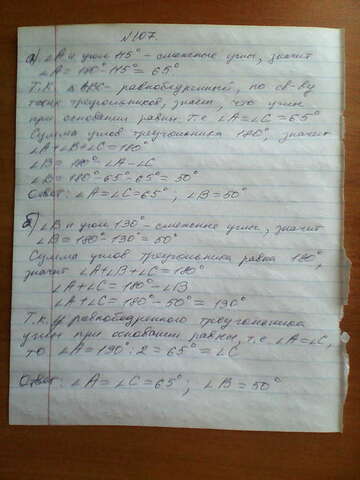 №107.
а) ∠A и угол 115° - смежные углы, значит
∠A = 180° - 115° = 65°
Т.К. △ABC - равнобедренный, по св-ву
таких треугольников, знаем, что углы
при основании равны т.е ∠A = ∠C = 65°
Сумма углов треугольника 180°, значит
∠A + ∠B + ∠C = 180°
∠B = 180° - ∠A - ∠C
∠B = 180° - 65° - 65° = 50°
Ответ: ∠A = ∠C = 65°, ∠B = 50°
б) ∠B и угол 130° - смежные углы, значит
∠B = 180° - 130° = 50°
Сумма углов треугольника равна 180°,
значит ∠A + ∠B + ∠C = 180°
∠A + ∠C = 180° - ∠B
∠A + ∠C = 180° - 50° = 130°
Т.К. у равнобедренного треугольника
углы при основании равны, т.е. ∠A = ∠C,
то ∠A = 130° : 2 = 65° = ∠C
Ответ: ∠A = ∠C = 65°; ∠B = 50°